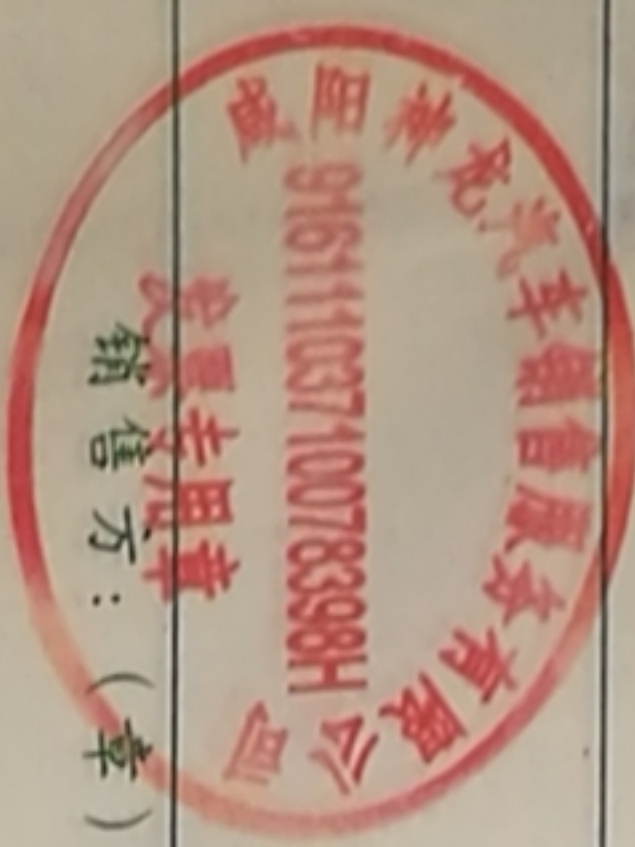 汽车销售服务有限公司
91611103710078398H
发票专用章
销售方:(章)